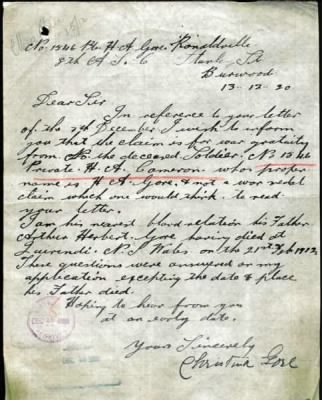 No 1546 Pte H A Gore Ronaldville
8th A. S. C Stanley St
Burwood
13-12-20
Dear Sir
In reference to your letter
of the 7th December I wish to inform
you that the claim is for war gratuity
from the deceased Soldier, No 1546
Private H. A. Cameron whos proper
name is H A Gore, & not a war medal
claim which one would think to read
your letter.
I am his nearest blood relation his Father
Arthur Herbert Gore having died at
Quirindi N. S Wales on the 21st Feb 1912
These questions were answered on my
application excepting the date & place
his Father died.
Hoping to hear from you
at an early date.
Yours Sincerely
Christina Gore